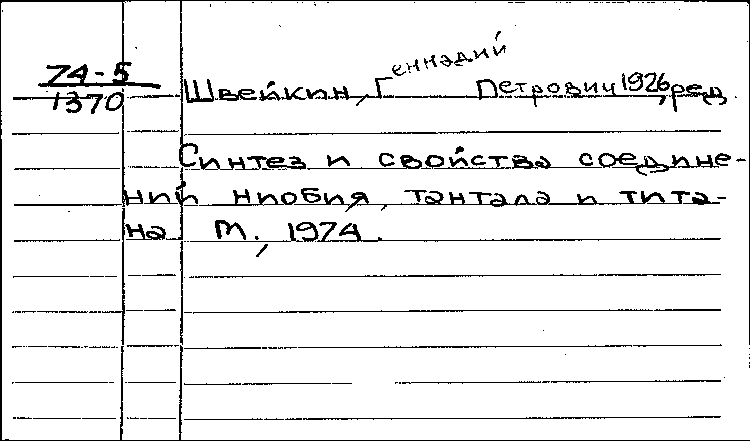 74-5
1370
Швейкин, Геннадий Петрович 1926, ред.
Синтез и свойства соедине-
ний ниобия, тантала и тита-
на М., 1974.